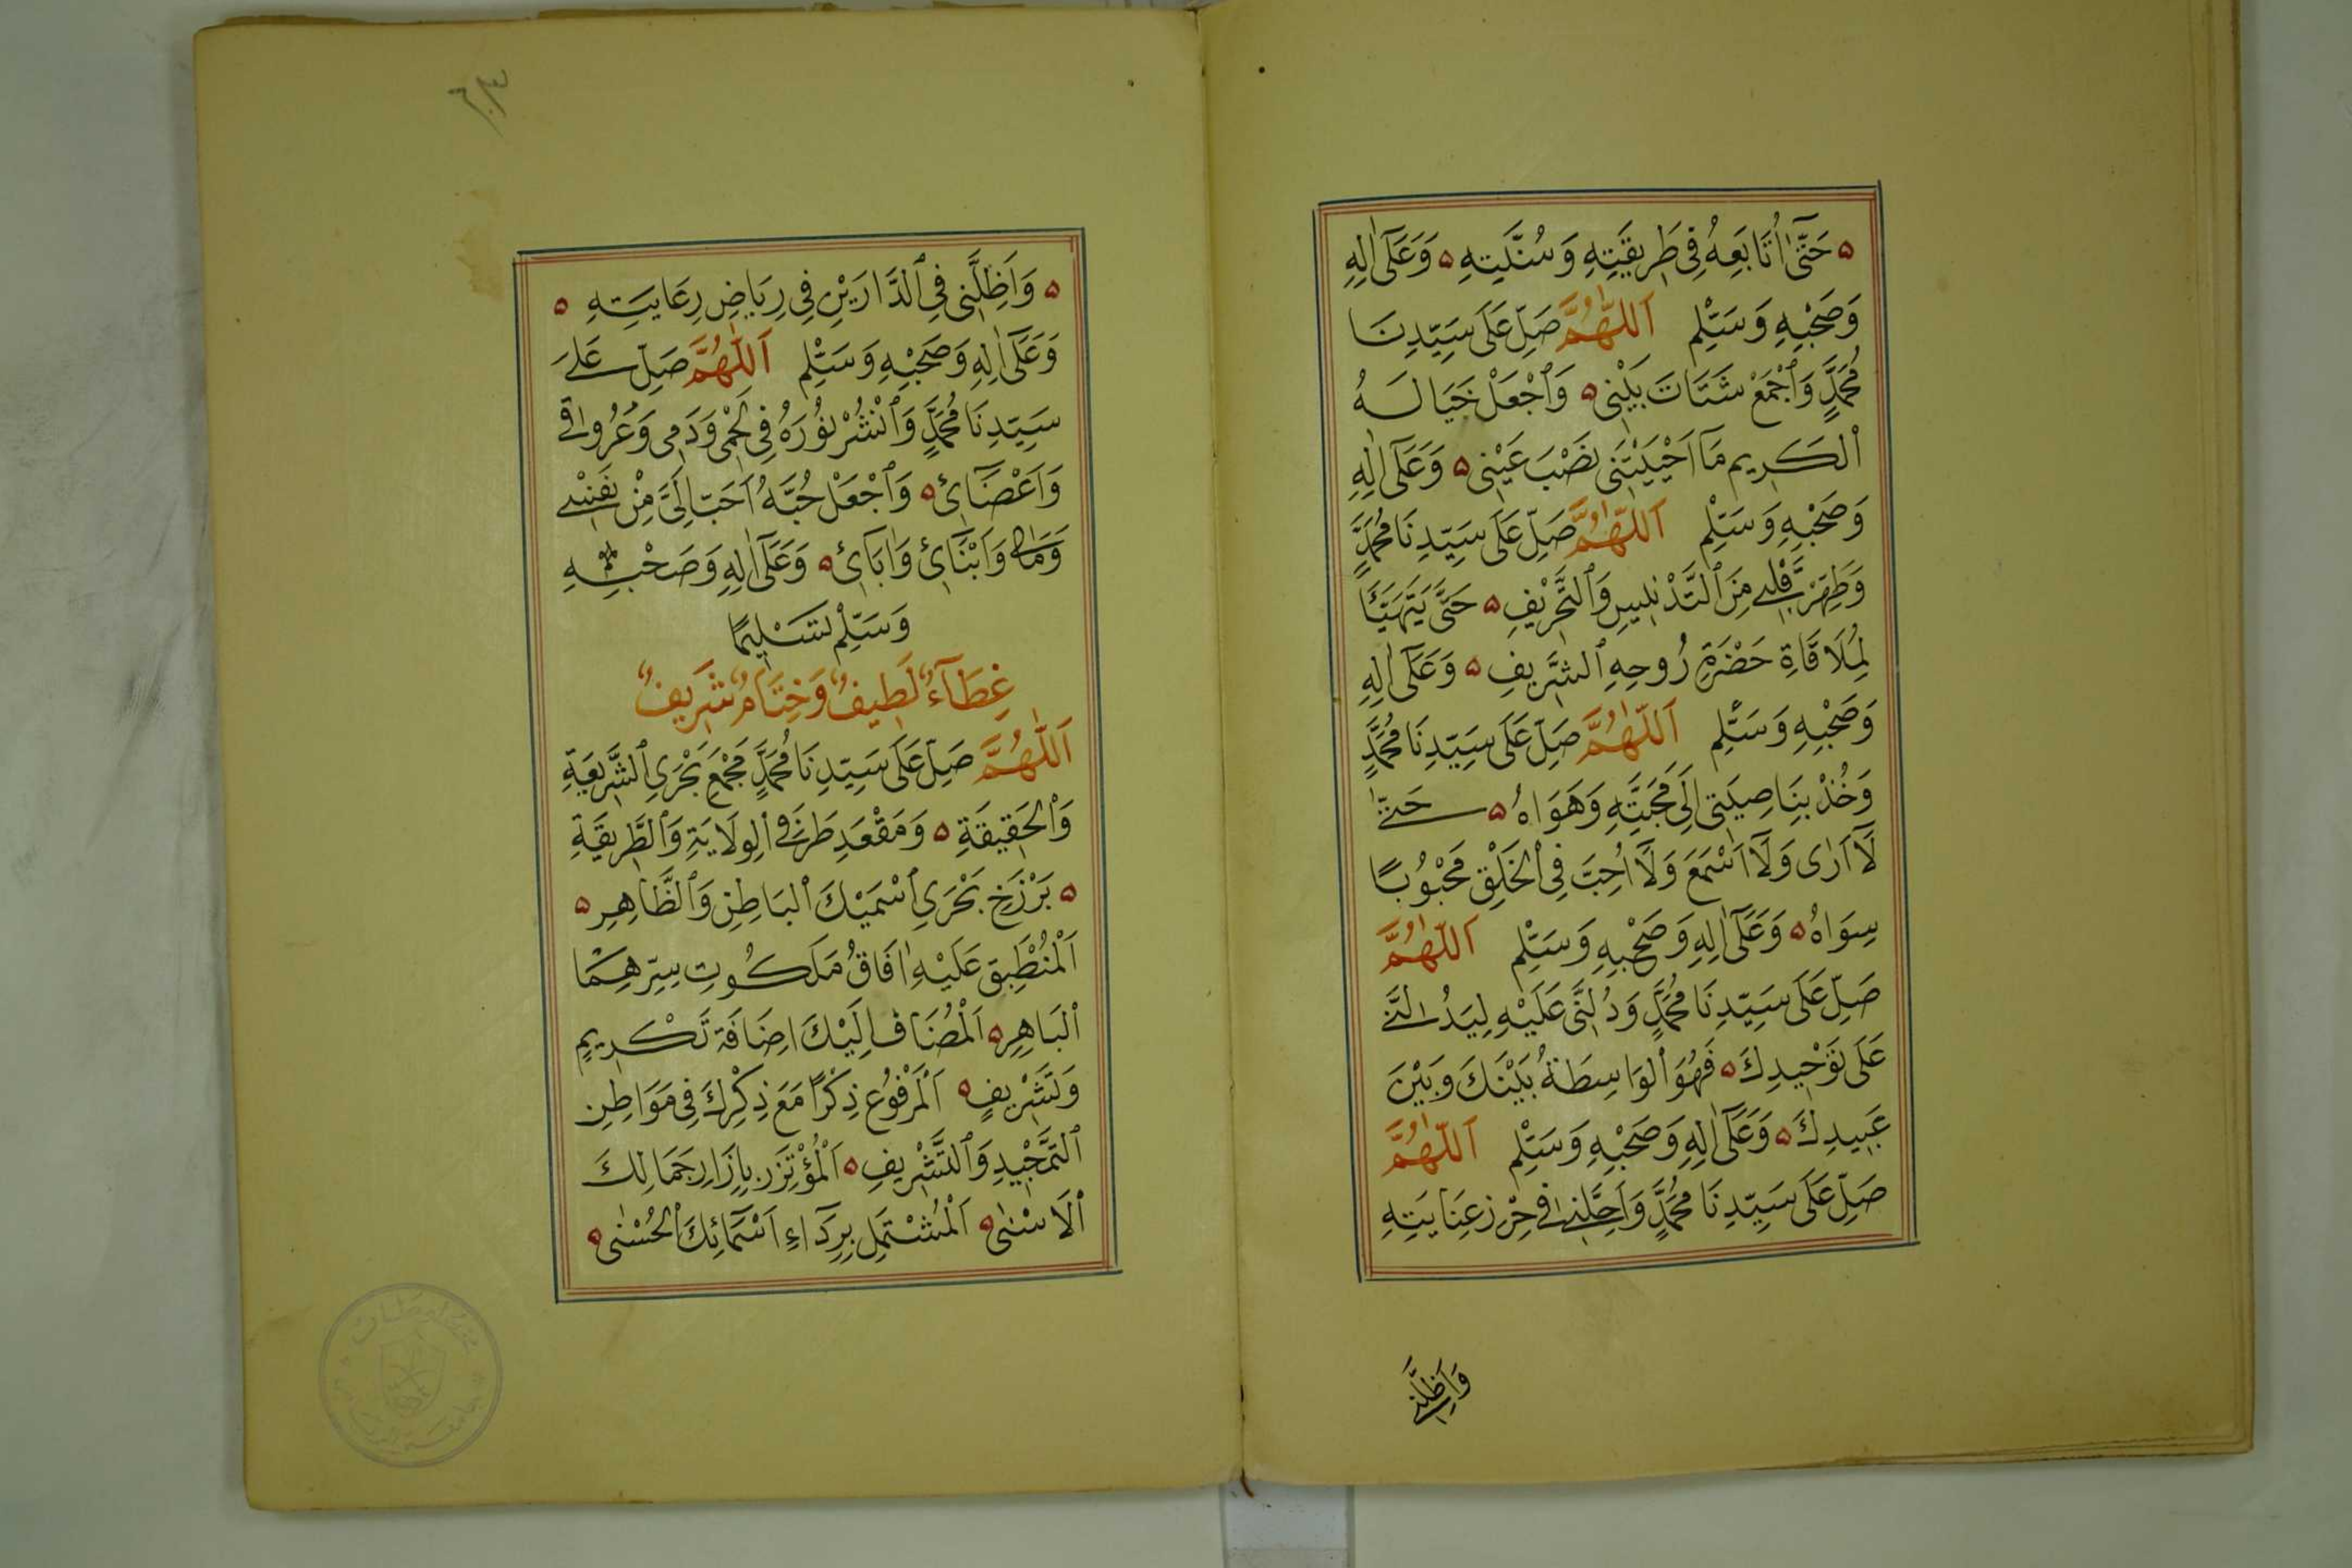 ه حَتّٰى اُتَابِعَهُ فِى طَرِيقَتِهِ وَسُنَّتِهِ ه وَعَلَى اٰلِهِ
وَصَحْبِهِ وَسَلِّمْ اَللّٰهُمَّ صَلِّ عَلَى سَيِّدِنَا
مُحَمَّدٍ وَٱجْمَعْ شَتَاتَ بَيْنِى ه وَٱجْعَلْ خَيَالَهُ
ٱلْكَرِيم مَآ اَحْيَيْتَنِى نَصْبَ عَيْنِى ه وَعَلَى اٰلِهِ
وَصَحْبِهِ وَسَلِّمْ اَللّٰهُمَّ صَلِّ عَلَى سَيِّدِنَا مُحَمَّدٍ
وَطَهِّرْ قَلْبِى مِنَ ٱلتَّدْنِيسِ وَٱلتَّحْرِيْفِ ه حَتَّى يَتَهَيَّأَ
لِمُلَاقَاةِ حَضْرَةِ رُوحِهِ ٱلشَّرِيفِ ه وَعَلَى اٰلِهِ
وَصَحْبِهِ وَسَلِّمْ اَللّٰهُمَّ صَلِّ عَلَى سَيِّدِنَا مُحَمَّدٍ
وَخُذْ بِنَاصِيَتِى اِلَى مَحَبَّتِهِ وَهَوَاهُ ه حَتّٰى
لَآ اَرٰى وَلَآ اَسْمَعَ وَلَآ اُحِبَّ فِى ٱلْخَلْقِ مَحْبُوْبًا
سِوَاهُ ه وَعَلَى اٰلِهِ وَصَحْبِهِ وَسَلِّمْ اَللّٰهُمَّ
صَلِّ عَلَى سَيِّدِنَا مُحَمَّدٍ وَدُلَّنِى عَلَيْهِ لِيَدُلَّنِى
عَلَى تَوْحِيدِكَ ه فَهُوَ ٱلْوَاسِطَةُ بَيْنَكَ وَبَيْنَ
عَبِيدِكَ ه وَعَلَى اٰلِهِ وَصَحْبِهِ وَسَلِّمْ اَللّٰهُمَّ
صَلِّ عَلَى سَيِّدِنَا مُحَمَّدٍ وَاَحِلَّنِى فِى حِرْزِ عِنَايَتِهِ
وَاَظِلَّنِى
ه وَاَظِلَّنِى فِى ٱلدَّارَيْنِ فِى رِيَاضِ رِعَايَتِهِ ه
وَعَلَى اٰلِهِ وَصَحْبِهِ وَسَلِّمْ اَللّٰهُمَّ صَلِّ عَلَى
سَيِّدِنَا مُحَمَّدٍ وَٱنْشُرْ نُوْرَهُ فِى لَحْمِى وَدَمِى وَعُرُوقِى
وَاَعْضَآئِى ه وَٱجْعَلْ حُبَّهُ اَحَبَّ اِلَىَّ مِنْ نَفْسِى
وَمَالِى وَاَبْنَآئِ وَاٰبَآئِ ه وَعَلَى اٰلِهِ وَصَحْبِهِ
وَسَلِّمْ تَسْلِيمًا
غِطَآءٌ لَطِيفٌ وَخِتَامٌ شَرِيفٌ
اَللّٰهُمَّ صَلِّ عَلَى سَيِّدِنَا مُحَمَّدٍ مَجْمَعِ بَحْرَىِ ٱلشَّرِيعَةِ
وَٱلْحَقِيقَةِ ه وَمَقْعَدِ طَرَفَىِ ٱلْوِلَايَةِ وَٱلطَّرِيقَةِ
ه بَرْزَخِ بَحْرَىِ ٱسْمَيْكَ ٱلْبَاطِنِ وَٱلظَّاهِرِ ه
اَلْمُنْطَبِقِ عَلَيْهِ اٰفَاقُ مَلَكُوتِ سِرِّهِمَا
ٱلْبَاهِرِ ه اَلْمُضَافِ اِلَيْكَ اِضَافَةَ تَكْرِيمٍ
وَتَشْرِيفٍ ه اَلْمَرْفُوْعِ ذِكْرًا مَعَ ذِكْرِكَ فِى مَوَاطِنِ
ٱلتَّمْجِيْدِ وَٱلتَّشْرِيفِ ه اَلْمُؤْتَزِرِ بِاِزَارِ جَمَالِكَ
ٱلْاَسْنٰى ه اَلْمُشْتَمِلِ بِرِدَآءِ اَسْمَآئِكَ ٱلْحُسْنٰى ه